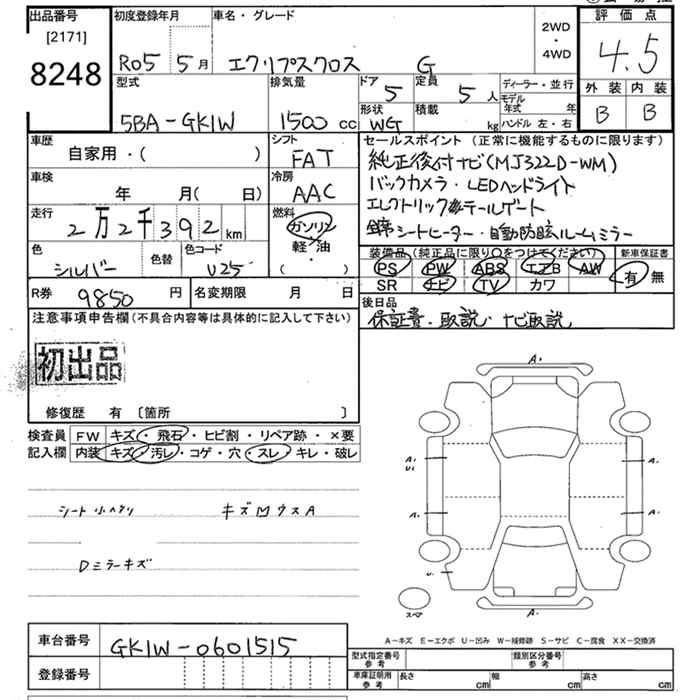 出品番号
[2171]
8248
初度登録年月
R05 5月
車名・グレード
エクリプスクロス G
2WD
・
4WD
評価点
4.5
外装 内装
B B
型式
5BA-GK1W
排気量
1500 cc
ドア
5
定員
5人
形状
WG
積載
kg
ディーラー・並行
モデル年式 年
ハンドル 左・右
車歴
自家用・( )
シフト
FAT
車検
年 月( 日)
冷房
AAC
走行
2万2千392km
燃料
ガソリン
軽・油
・
( )
色
シルバー
色替
色コード
U25
セールスポイント(正常に機能するものに限ります)
純正後付ナビ(MJ322D-WM)
バックカメラ・LEDヘッドライト
エレクトリックテールゲート
シートヒーター・自動防眩ルームミラー
装備品(純正品に限り○をつけてください)
PS PW ABS エアB AW
SR ナビ TV カワ
新車保証書
有 無
R券
9850円
名変期限 月 日
後日品
保証書、取説、ナビ取説、
注意事項申告欄(不具合内容等は具体的に記入して下さい)
初出品
修復歴 有 [箇所 ]
検査員記入欄
FW キズ・飛石・ヒビ割・リペア跡・×要
内装 キズ・汚レ・コゲ・穴・スレ・キレ・破レ
シート小ヘタリ
キズ凹ウスA
Dミラーキズ
A1
A1
U1
A1
A1
A1
U1
A1
スペア
A-キズ E-エクボ U-凹み W-補修跡 S-サビ C-腐食 XX-交換済
車台番号
GK1W-0601515
登録番号
型式指定番号 参考
類別区分番号 参考
車庫証明用 参考
長さ cm
幅 cm
高さ cm